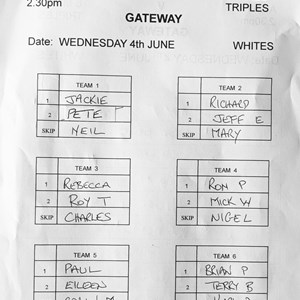 2.30pm TRIPLES
GATEWAY
Date: WEDNESDAY 4th JUNE WHITES
TEAM 1
1 JACKIE
2 PETE T
SKIP NEIL
TEAM 2
1 RICHARD
2 JEFF E
SKIP MARY
TEAM 3
1 REBECCA
2 ROY T
SKIP CHARLES
TEAM 4
1 RON P
2 MICK W
SKIP NIGEL
TEAM 5
1 PAUL
2 EILEEN
TEAM 6
1 BRIAN P
2 TERRY B